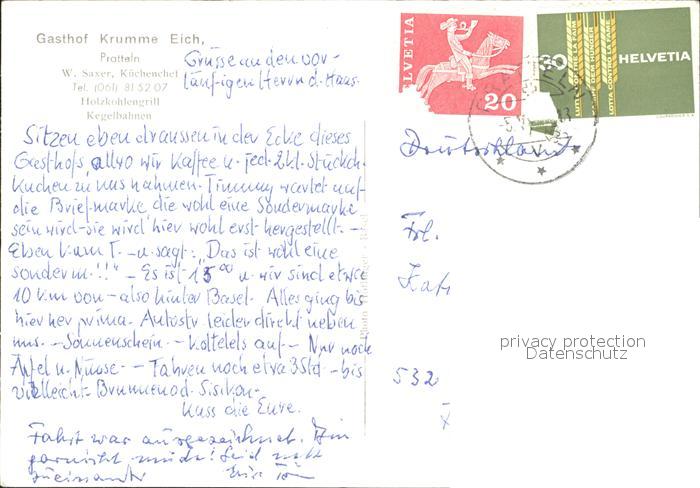 Gasthof Krumme Eich,
Pratteln
W. Saxer, Küchenchef
Tel. (061) 81 52 07
Holzkohlengrill
Kegelbahnen
Grüsse an den vor-
läufigen Herrn d. Haas.
HELVETIA
20
20
LUTTE CONTRE LA FAIM
DEM HUNGER
LOTTA CONTRO LA FAME
HELVETIA
Sitzen eben draussen in der Ecke dieses
Gasthofs, allwo wir Kaffee u. jed. 2kl. Stückch.
Kuchen zu uns nahmen. Timmy wartet auf
die Briefmarke, die wohl eine Sondermarke
sein wird - sie wird hier wohl erst hergestellt. -
Eben kam T. - u. sagt: "Das ist wohl eine
sonderm.!!" - Es ist 15 00 u. wir sind etwa
10 km von - also hinter Basel. Alles ging bis
hierher prima. Autostr. leider direkt neben
uns. - Sonnenschein. - Kotteletts auf - Nur noch
Äpfel u. Nüsse. - Fahren noch etwa 3 Std - bis
vielleicht Brunnen od. Sisikon.
Kuss die Eure.
Fahrt war ausgezeichnet. Bin
garnicht müde! Seid nett
zueinander
Deutschland
Frl.
Kat
532
privacy protection
Datenschutz